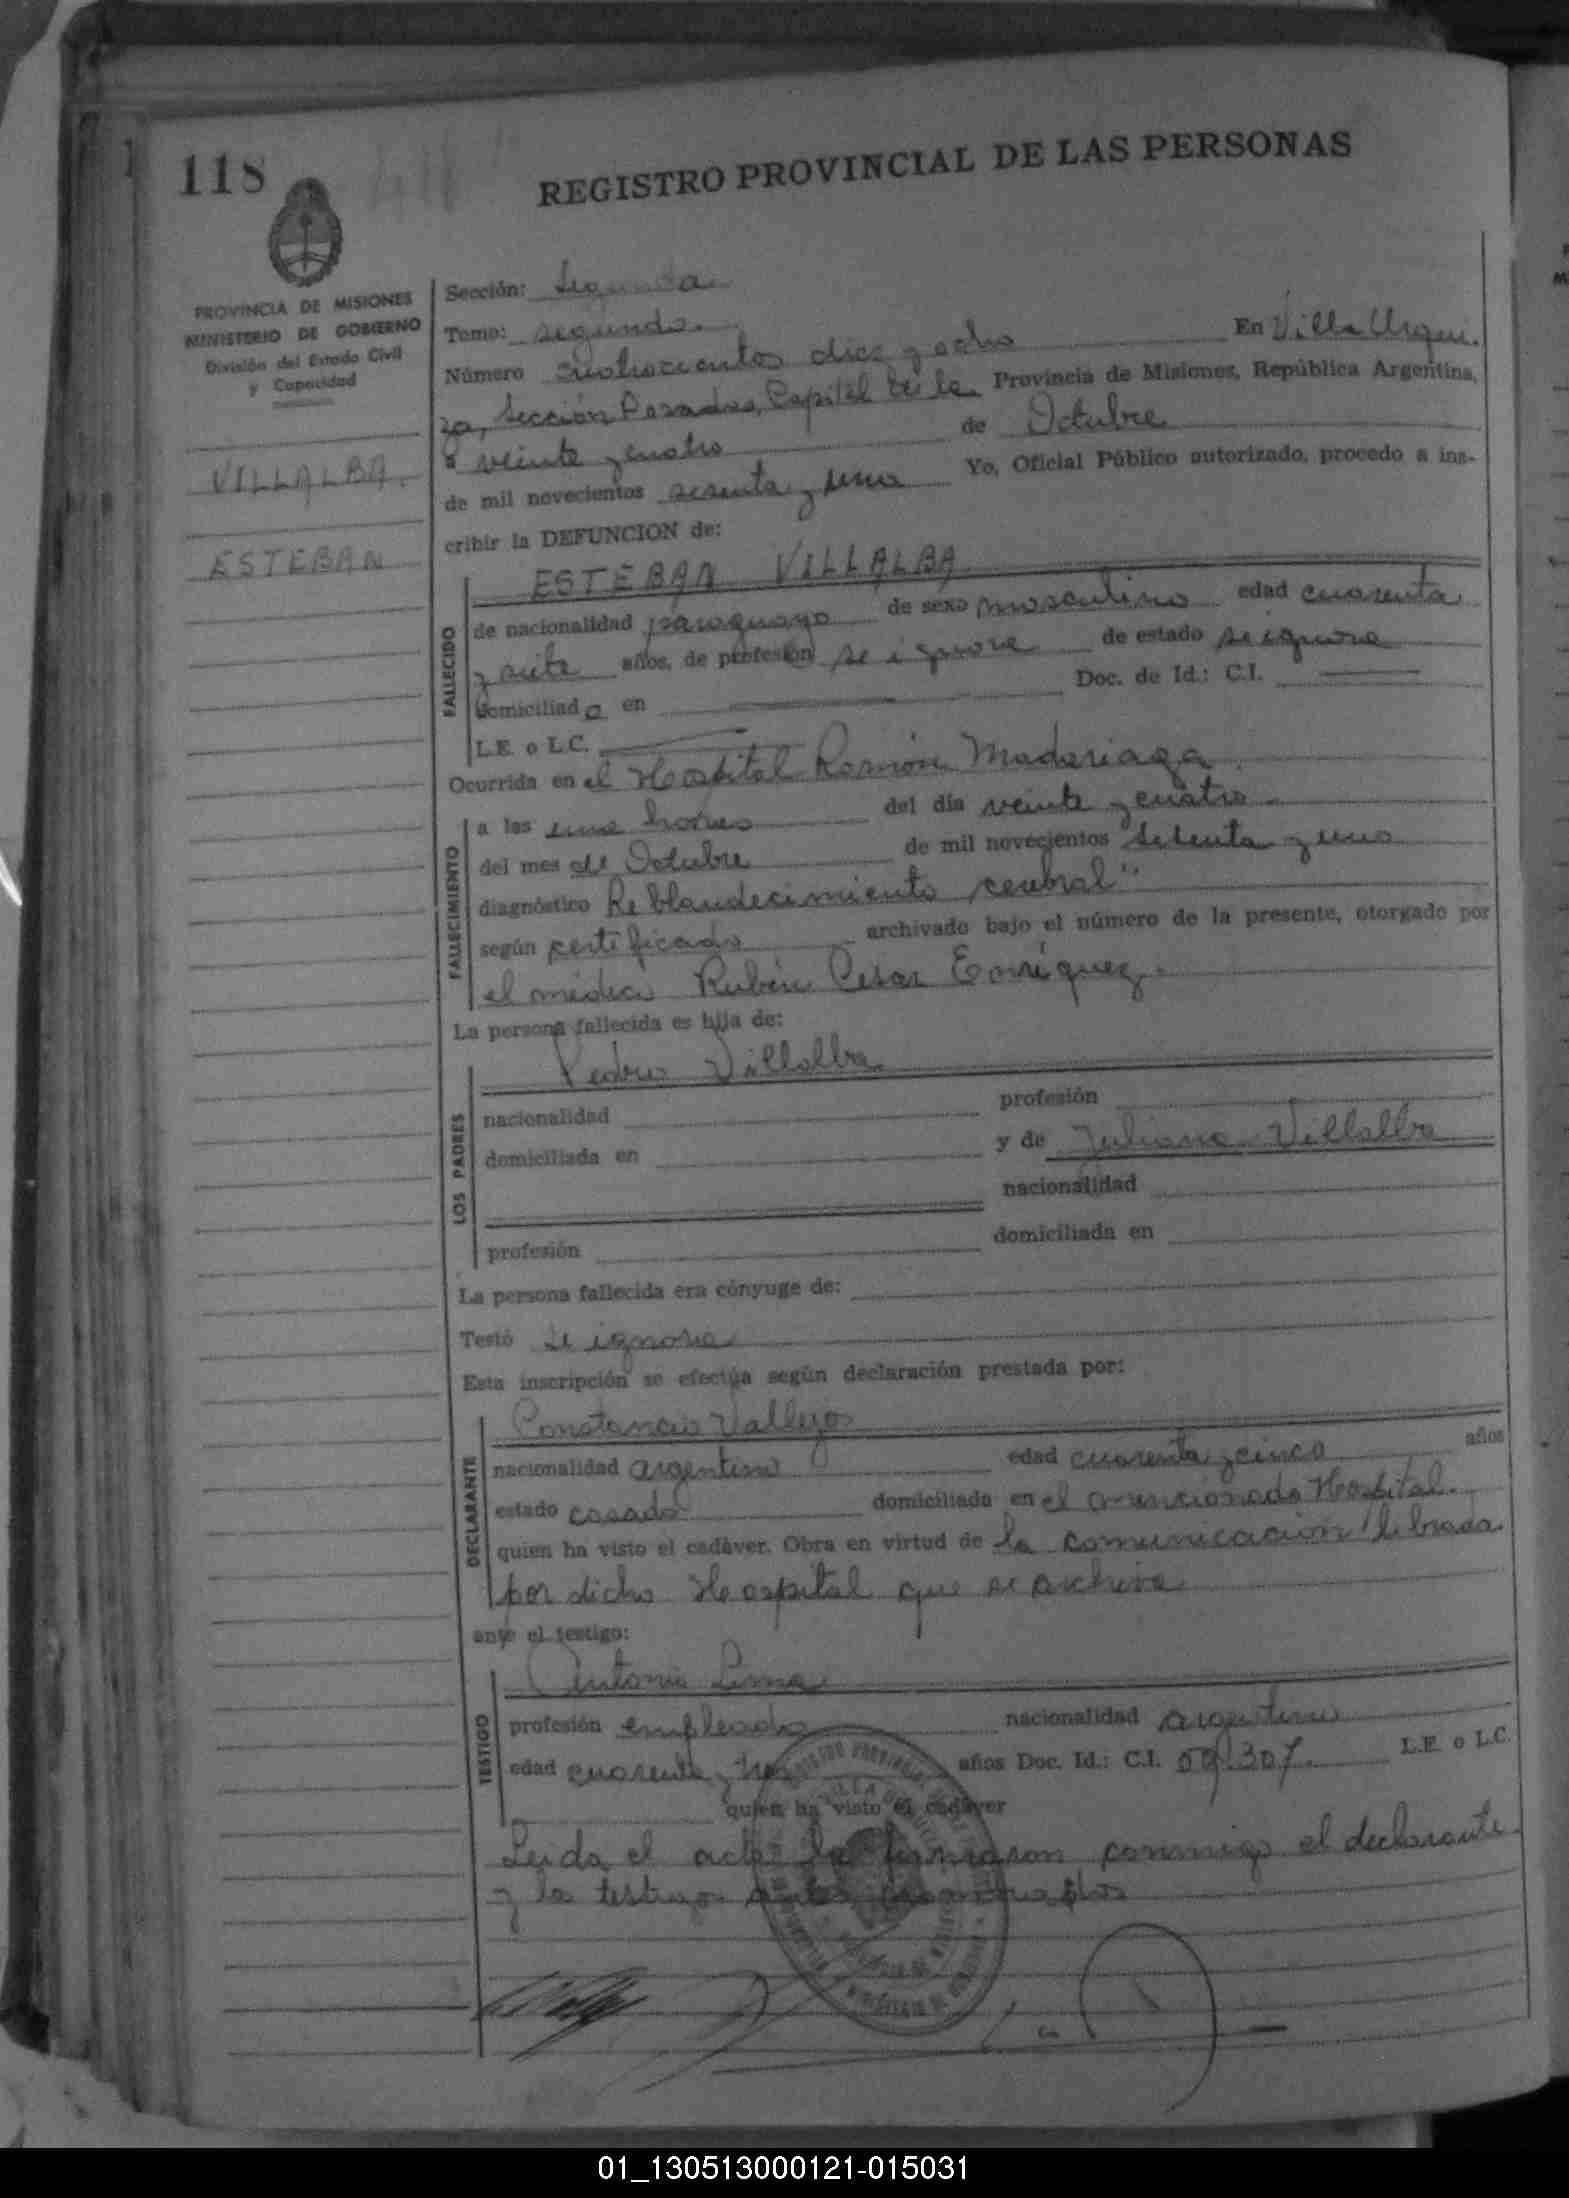 118
REGISTRO PROVINCIAL DE LAS PERSONAS
PROVINCIA DE MISIONES
MINISTERIO DE GOBIERNO
División del Estado Civil
y Capacidad
VILLALBA.
ESTEBAN
Sección: Segunda
Tomo: segundo.
Número cuatrocientos diez y ocho En Villa Urqui-
za, Sección Posadas, Capital de la Provincia de Misiones, República Argentina,
a veinte y cuatro de Octubre
de mil novecientos sesenta y uno Yo, Oficial Público autorizado, procedo a ins-
cribir la DEFUNCION de:
ESTEBAN VILLALBA
FALLECIDO
de nacionalidad paraguayo de sexo masculino edad cuarenta
y siete años, de profesión se ignora de estado se ignora
domiciliado en Doc. de Id.: C.I.
L.E. o L.C.
Ocurrida en el Hospital Ramón Madariaga.
FALLECIMIENTO
a las una horas del día veinte y cuatro
del mes de Octubre de mil novecientos setenta y uno
diagnóstico Reblandecimiento cerebral"
según certificado archivado bajo el número de la presente, otorgado por
el médico Rubén Cesar Enriquez.
La persona fallecida es hija de:
Pedro Villalba
LOS PADRES
nacionalidad profesión
domiciliada en y de Juliana Villalba
nacionalidad
profesión domiciliada en
La persona fallecida era cónyuge de:
Testó se ignora
Esta inscripción se efectúa según declaración prestada por:
Constancio Vallejos
DECLARANTE
nacionalidad argentino edad cuarenta y cinco años
estado casado domiciliada en el mencionado Hospital.
quien ha visto el cadáver. Obra en virtud de la comunicación librada
por dicho Hospital que se archiva
ante el testigo:
Antonio Lima
TESTIGO
profesión empleado nacionalidad argentino
edad cuarenta y tres años Doc. Id.: C.I. 59.307. L.E. o L.C.
quien ha visto el cadáver
Leida el acta la firmaron conmigo el declarante
y la testigos
01_130513000121-015031